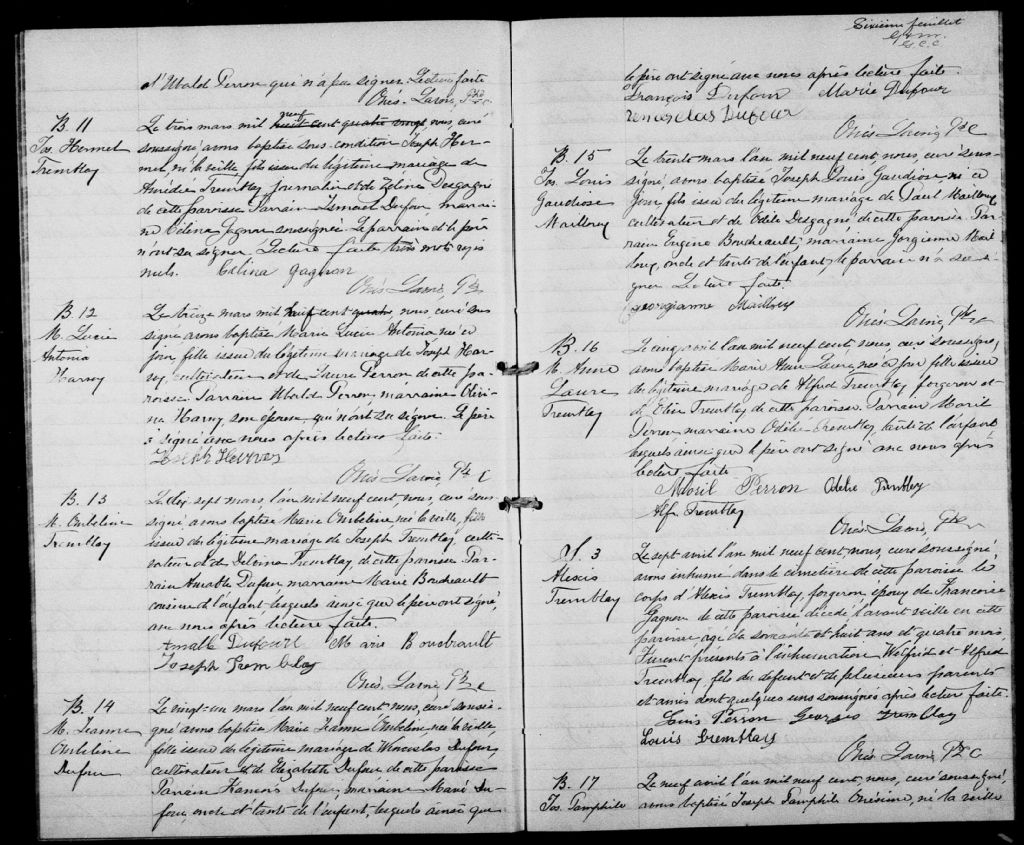 d'Ubald Perron qui n'a pu signer. Lecture faite
Onés. Lavoie, Ptre C.
B. 11
Jos. Hermel
Tremblay
Le trois mars mil neuf cent, nous, curé
soussigné avons baptisé sous condition Joseph Her-
mel, né la veille, fils issu du légitime mariage de
Tremblay journalier et de Zélina Desgagné
de cette paroisse. Parrain Ismael Dufour, marrai-
ne Célina Gagnon soussignée. Le parrain et le père
n'ont su signer. Lecture faite trois mots rayés
nuls. Célina Gagnon
Onés. Lavoie, Ptre
B. 12
M. Lucie
Antonia
Harvey
Le treize mars mil neuf cent, nous, curé sous-
signé avons baptisé Marie Lucie Antonia née ce
jour fille issue du légitime mariage de Joseph Har-
vey, cultivateur et de Laure Perron de cette pa-
roisse. Parrain Ubald Perron, marraine
Harvey son épouse, qui n'ont su signer. Le père
a signé avec nous après lecture faite.
Joseph Hervey
Onés. Lavoie, Ptre C
B. 13
M. Ombéline
Tremblay
Le dix sept mars l'an mil neuf cent, nous, curé sous-
signé avons baptisé Marie Ombéline née la veille, fille
issue du légitime mariage de Joseph Tremblay, culti-
vateur et de Tremblay de cette paroisse. Par-
rain Amable Dufour marraine Marie Boudreault
cousine de l'enfant, lesquels ainsi que le père ont signé,
avec nous après lecture faite.
Amable Dufourt Marie Boudreault
Joseph Tremblay
Onés. Lavoie, Ptre C
B. 14
M. Jeanne
Ombéline
Dufour
Le vingt-un mars l'an mil neuf cent, nous, curé soussi-
gné avons baptisé Marie Jeanne Ombéline née la veille,
fille issue du légitime mariage de Wenceslas Dufour,
cultivateur et de Elizabeth Dufour de cette paroisse
Parrain François Dufour, marraine Marie Du-
four, oncle et tante de l'enfant, lesquels ainsi que
Sixième feuillet
G.C.C
le père ont signé avec nous après lecture faite.
François Dufour Marie Dufour
Venceslas Dufour
Onés. Lavoie, Ptre C
B. 15
Jos. Louis
Gaudiose
Mailloux
Le trente mars l'an mil neuf cent, nous, curé sous-
signé, avons baptisé Joseph Louis Gaudiose né ce
jour fils issu du légitime mariage de Paul Mailloux
cultivateur et de Odile Desgagné de cette paroisse. Par-
rain Eugène Boudreault, marraine Georgianne Mail-
loux, oncle et tante de l'enfant, le parrain n'a su si-
gner Lecture faite.
Georgianne Mailloux
Onés. Lavoie, Ptre C
B. 16
M. Anne
Laure
Tremblay
Le cinq avril l'an mil neuf cent, nous, curé soussigné,
avons baptisé Marie Anne Laure, née ce jour fille issue
du légitime mariage de Alfred Tremblay, forgeron et
de Tremblay de cette paroisse. Parrain Moril
Perron marraine Odélie Tremblay, tante de l'enfant
lesquels ainsi que le père ont signé avec nous après
lecture faite
Moril Perron Odélie Tremblay
Alf. Tremblay
Onés. Lavoie, Ptre
S. 3
Alexis
Tremblay
Le sept avril l'an mil neuf cent, nous, curé soussigné,
avons inhumé dans le cimetière de cette paroisse le
corps d'Alexis Tremblay, forgeron, époux de Françoise
Gagnon de cette paroisse décédé l'avant veille en cette
paroisse âgé de soixante et huit ans et quatre mois.
Furent présents à l'inhumation Wilfrid et Alfred
Tremblay fils du défunt et de plusieurs parents
et amis dont quelques uns soussignés après lecture faite.
Louis Perron Georges Tremblay
Louis Tremblay
Onés. Lavoie, Ptre C
B. 17
Jos. Pamphile
Le neuf avril l'an mil neuf cent, nous, curé soussigné,
avons baptisé Joseph Pamphile Onésime, né la veille